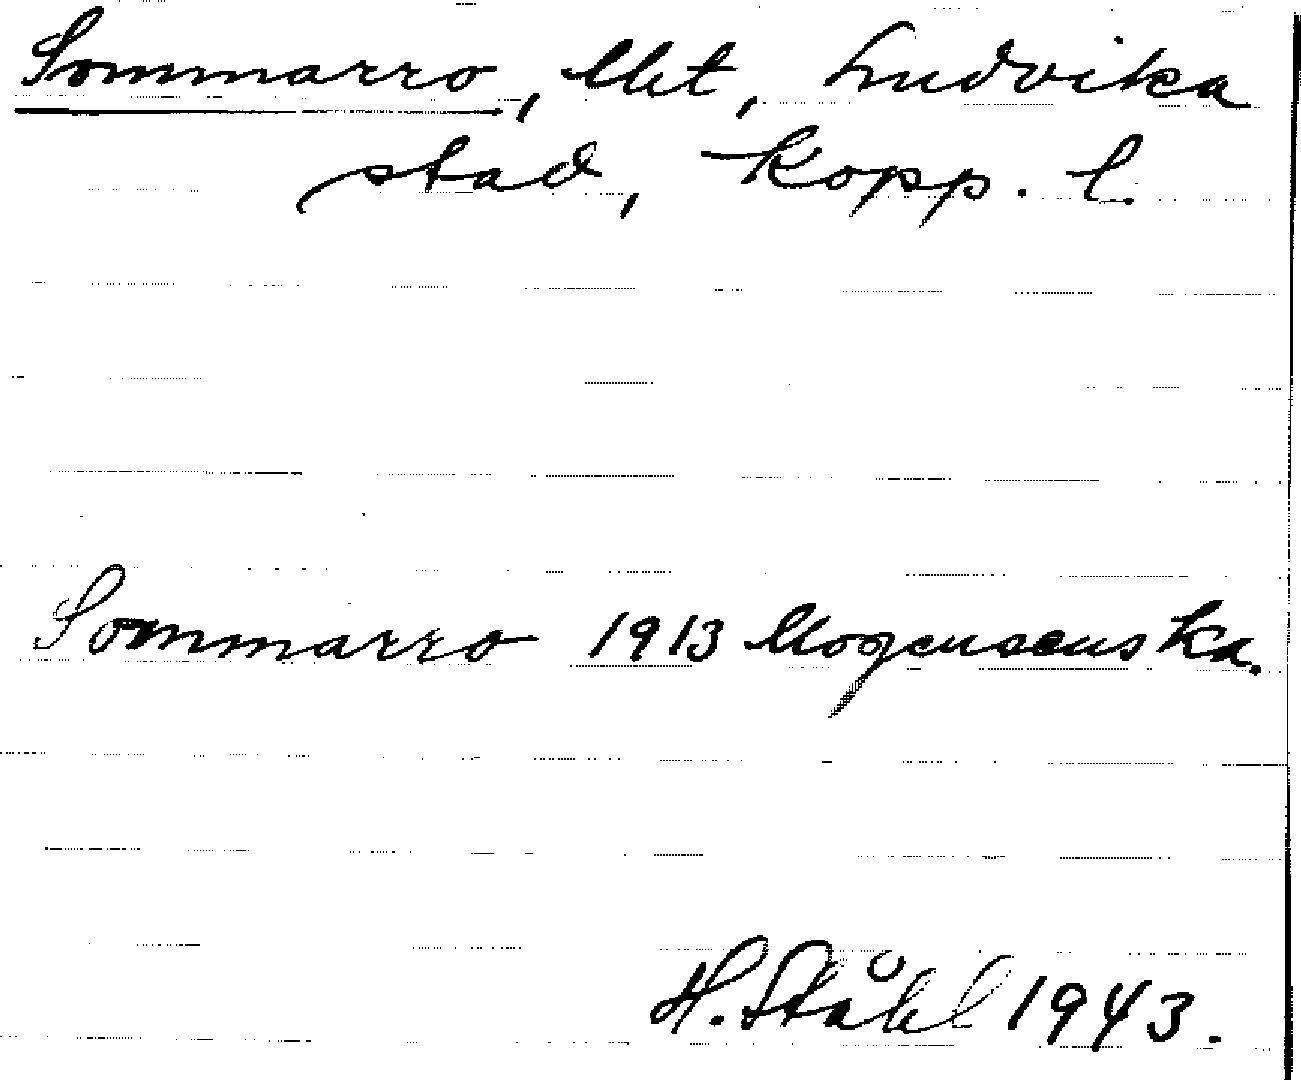 Sommarro, lht, Ludvika
stad, Kopp. l.
Sommarro 1913 Mogensens ka.
H. Ståhl 1943.